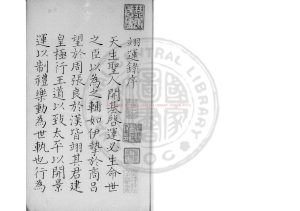 翊運錄序
天生聖人開基啓運必生命世
之臣以為之輔如伊摯於商呂
望於周張良於漢皆翊其君建
皇極行王道以致太平以開景
運以制禮樂動為世軌也行為
CENTRAL LIBRARY